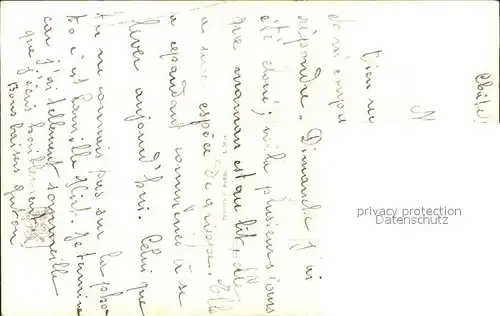 Châtel
N
Bien re
et m'empr
répondre. Dimanche j'ai
été cloué; voilà plusieurs jours
que maman est au lit, elle
a une espèce de grippe. Elle
a cependant commencé à se
lever aujourd'hui. Celui que
tu ne connais pas sur la pho-
to c'est Camille. Je termine
car j'ai tellement sommeille
que j'écris
Bons baisers
privacy protection
Veikkos Archiv